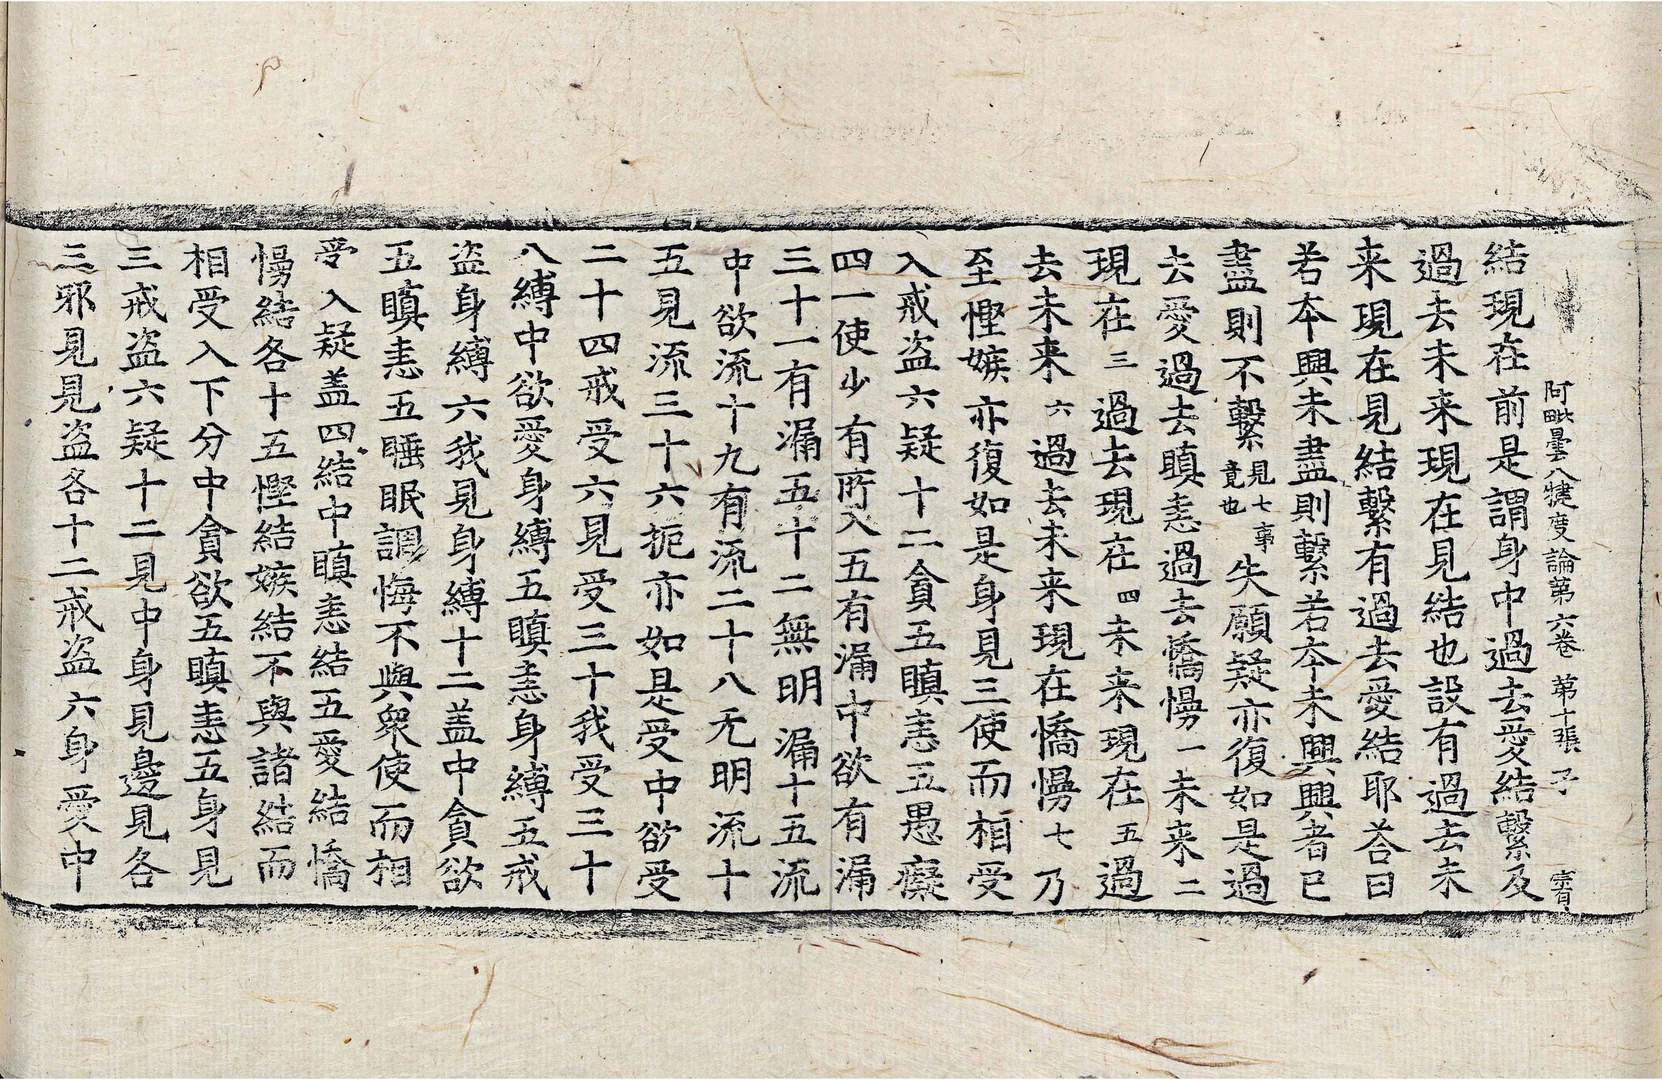 阿毗曇八犍度論第六卷 第十張 子
結現在前是謂身中過去愛結繫及
過去未来現在見結也設有過去未
来現在見結繫有過去愛結耶荅曰
若本興未盡則繫若本未興興者已
盡則不繫見七事竟也失願疑亦復如是過
去愛過去瞋恚過去憍慢一未来二
現在三過去現在四未来現在五過
去未来六過去未来現在憍慢七乃
至慳嫉亦復如是身見三使而相受
入戒盜六疑十二貪五瞋恚五愚癡
四一使少有所入五有漏中欲有漏
三十一有漏五十二無明漏十五流
中欲流十九有流二十八无明流十
五見流三十六扼亦如是受中欲受
二十四戒受六見受三十我受三十
八縛中欲愛身縛五瞋恚身縛五戒
盜身縛六我見身縛十二盖中貪欲
五瞋恚五睡眠調悔不與衆使而相
受入疑盖四結中瞋恚結五愛結憍
慢結各十五慳結嫉結不與諸結而
相受入下分中貪欲五瞋恚五身見
三戒盜六疑十二見中身見邊見各
三邪見見盜各十二戒盜六身愛中